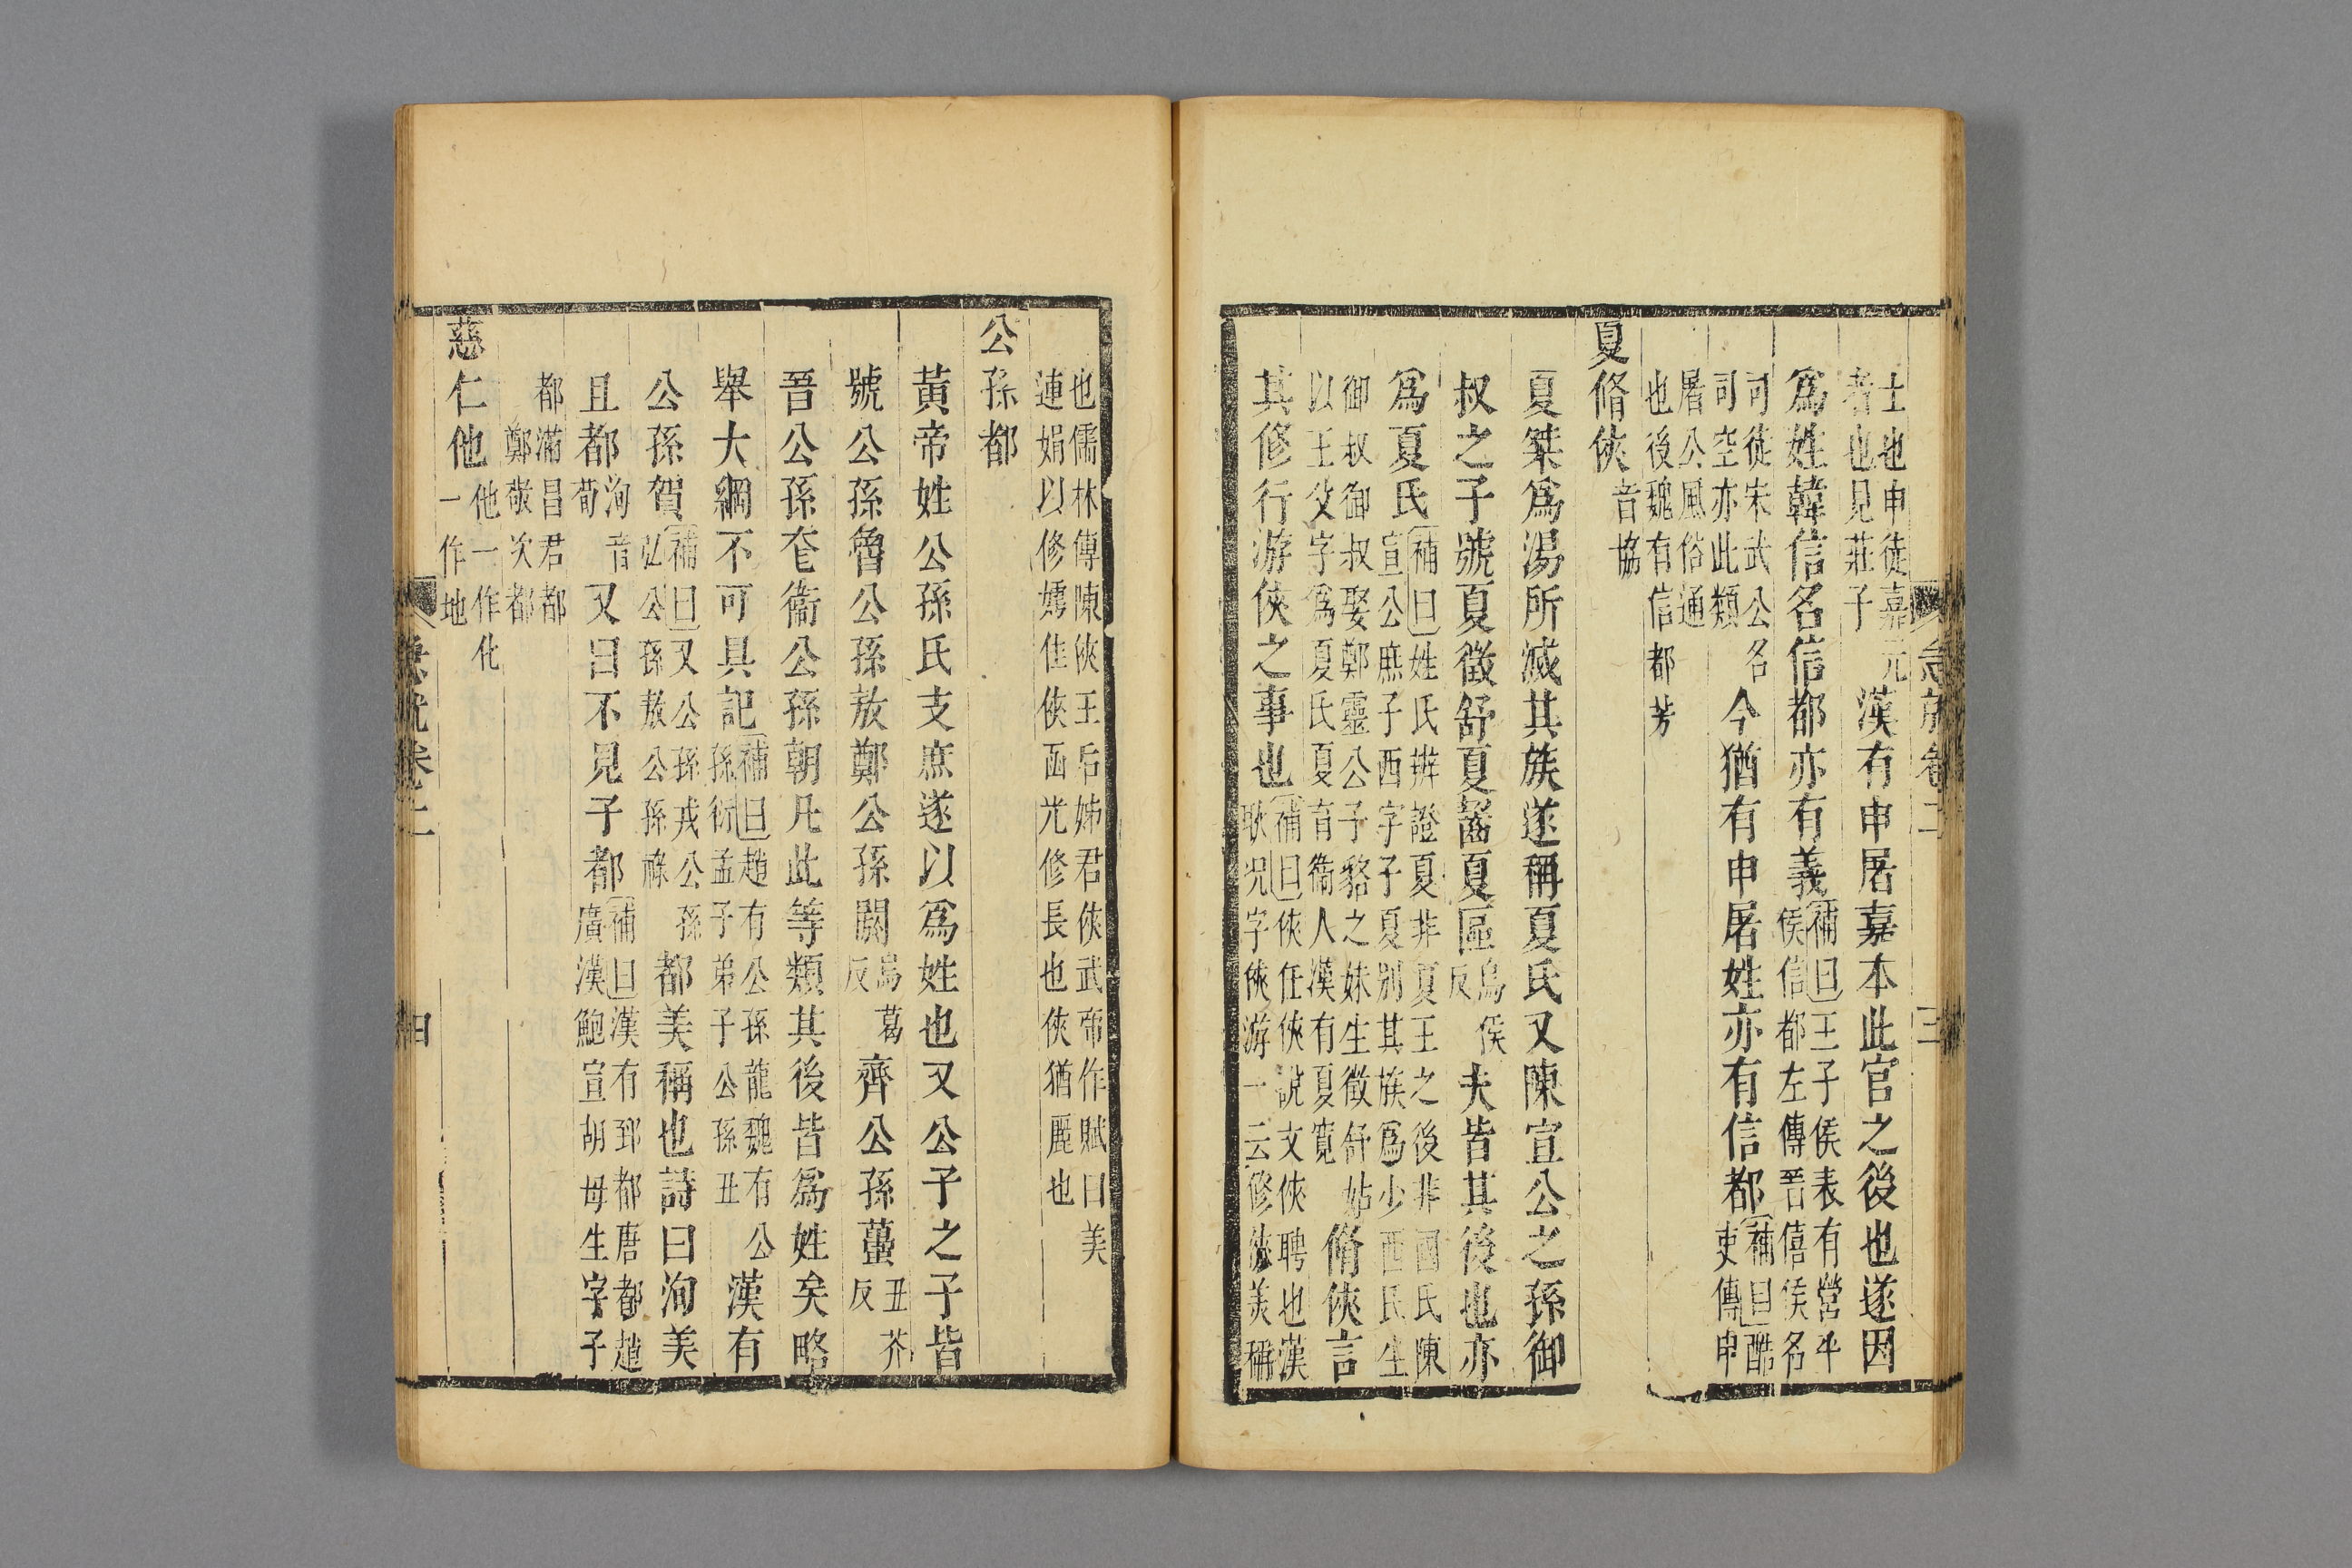 士也申徒嘉兀
者也見莊子
漢有申屠嘉本此官之後也遂因
爲姓韓信名信都亦有義
補曰王子侯表有營平
侯信都左傳晉僖侯名
司徒宋武公名
司空亦此類
今猶有申屠姓亦有信都
補曰酷
吏傳申
屠公風俗通
也後魏有信都芳
夏脩俠
音協
夏桀爲湯所滅其族遂稱夏氏又陳宣公之孫御
叔之子號夏徵舒夏齧夏區
烏侯
反
夫皆其後也亦
爲夏氏
補曰姓氏辨證夏非夏王之後非國氏陳
宣公庶子西字子夏别其族爲少西氏生
御叔御叔娶鄭靈公子貉之妹生徵舒
以王父字爲夏氏夏育衞人漢有夏寬
脩俠言
其修行游俠之事也
補曰俠任俠說文俠聘也漢
耿況字俠游一云修俠美稱
也儒林傳陳俠王后姊君俠武帝作賦曰美
連娟以修嫮佳俠函光修長也俠猶麗也
公孫都
黃帝姓公孫氏支庶遂以爲姓也又公子之子皆
號公孫魯公孫敖鄭公孫閼
烏葛
反
齊公孫蠆
丑芥
反
吾公孫奄衞公孫朝凡此等類其後皆爲姓矣略
舉大綱不可具記
補曰趙有公孫龍魏有公
孫衍孟子弟子公孫丑
漢有
公孫賀
補曰又公孫戎公孫
弘公孫敖公孫祿
都美稱也詩曰洵美
且都
洵音
荀
又曰不見子都
補曰漢有郅都唐都趙
廣漢鮑宣胡母生字子
都滿昌君都
鄭敬次都
慈仁他
他一作化
一作地
急就卷二
三
急就卷二
四